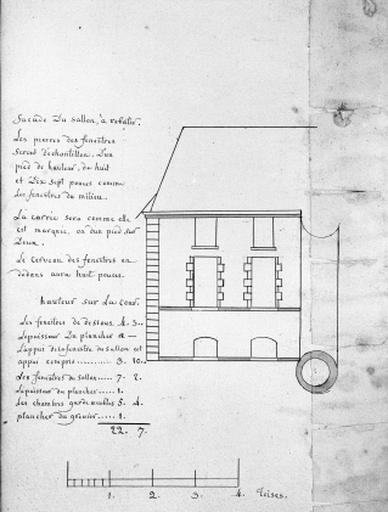 façade Du sallon, a rebatir.
Les pierres des fenêtres
seront d'échantillon. D'un
pied de hauteur, de huit
et Dix sept pouces comme
les fenêtres du milieu.
La carrie sera comme elle
est marquée, ou d'un pied sur
Deux.
Le cerveau des fenêtres en
dedans aura huit pouces.
hauteur sur La cour.
Les fenêtres de dessous 4. 3..
L'epaisseur Du plancher 1. —
L'appui des fenêtres du sallon est
apuis compris 3. 10.
Les fenêtres du sallon 7. 2.
L'epaisseur du plancher 1.
les chambres gardemeubles 5. 4.
plancher du grenier 1.
22. 7.
1. 2. 3. 4. Toises.